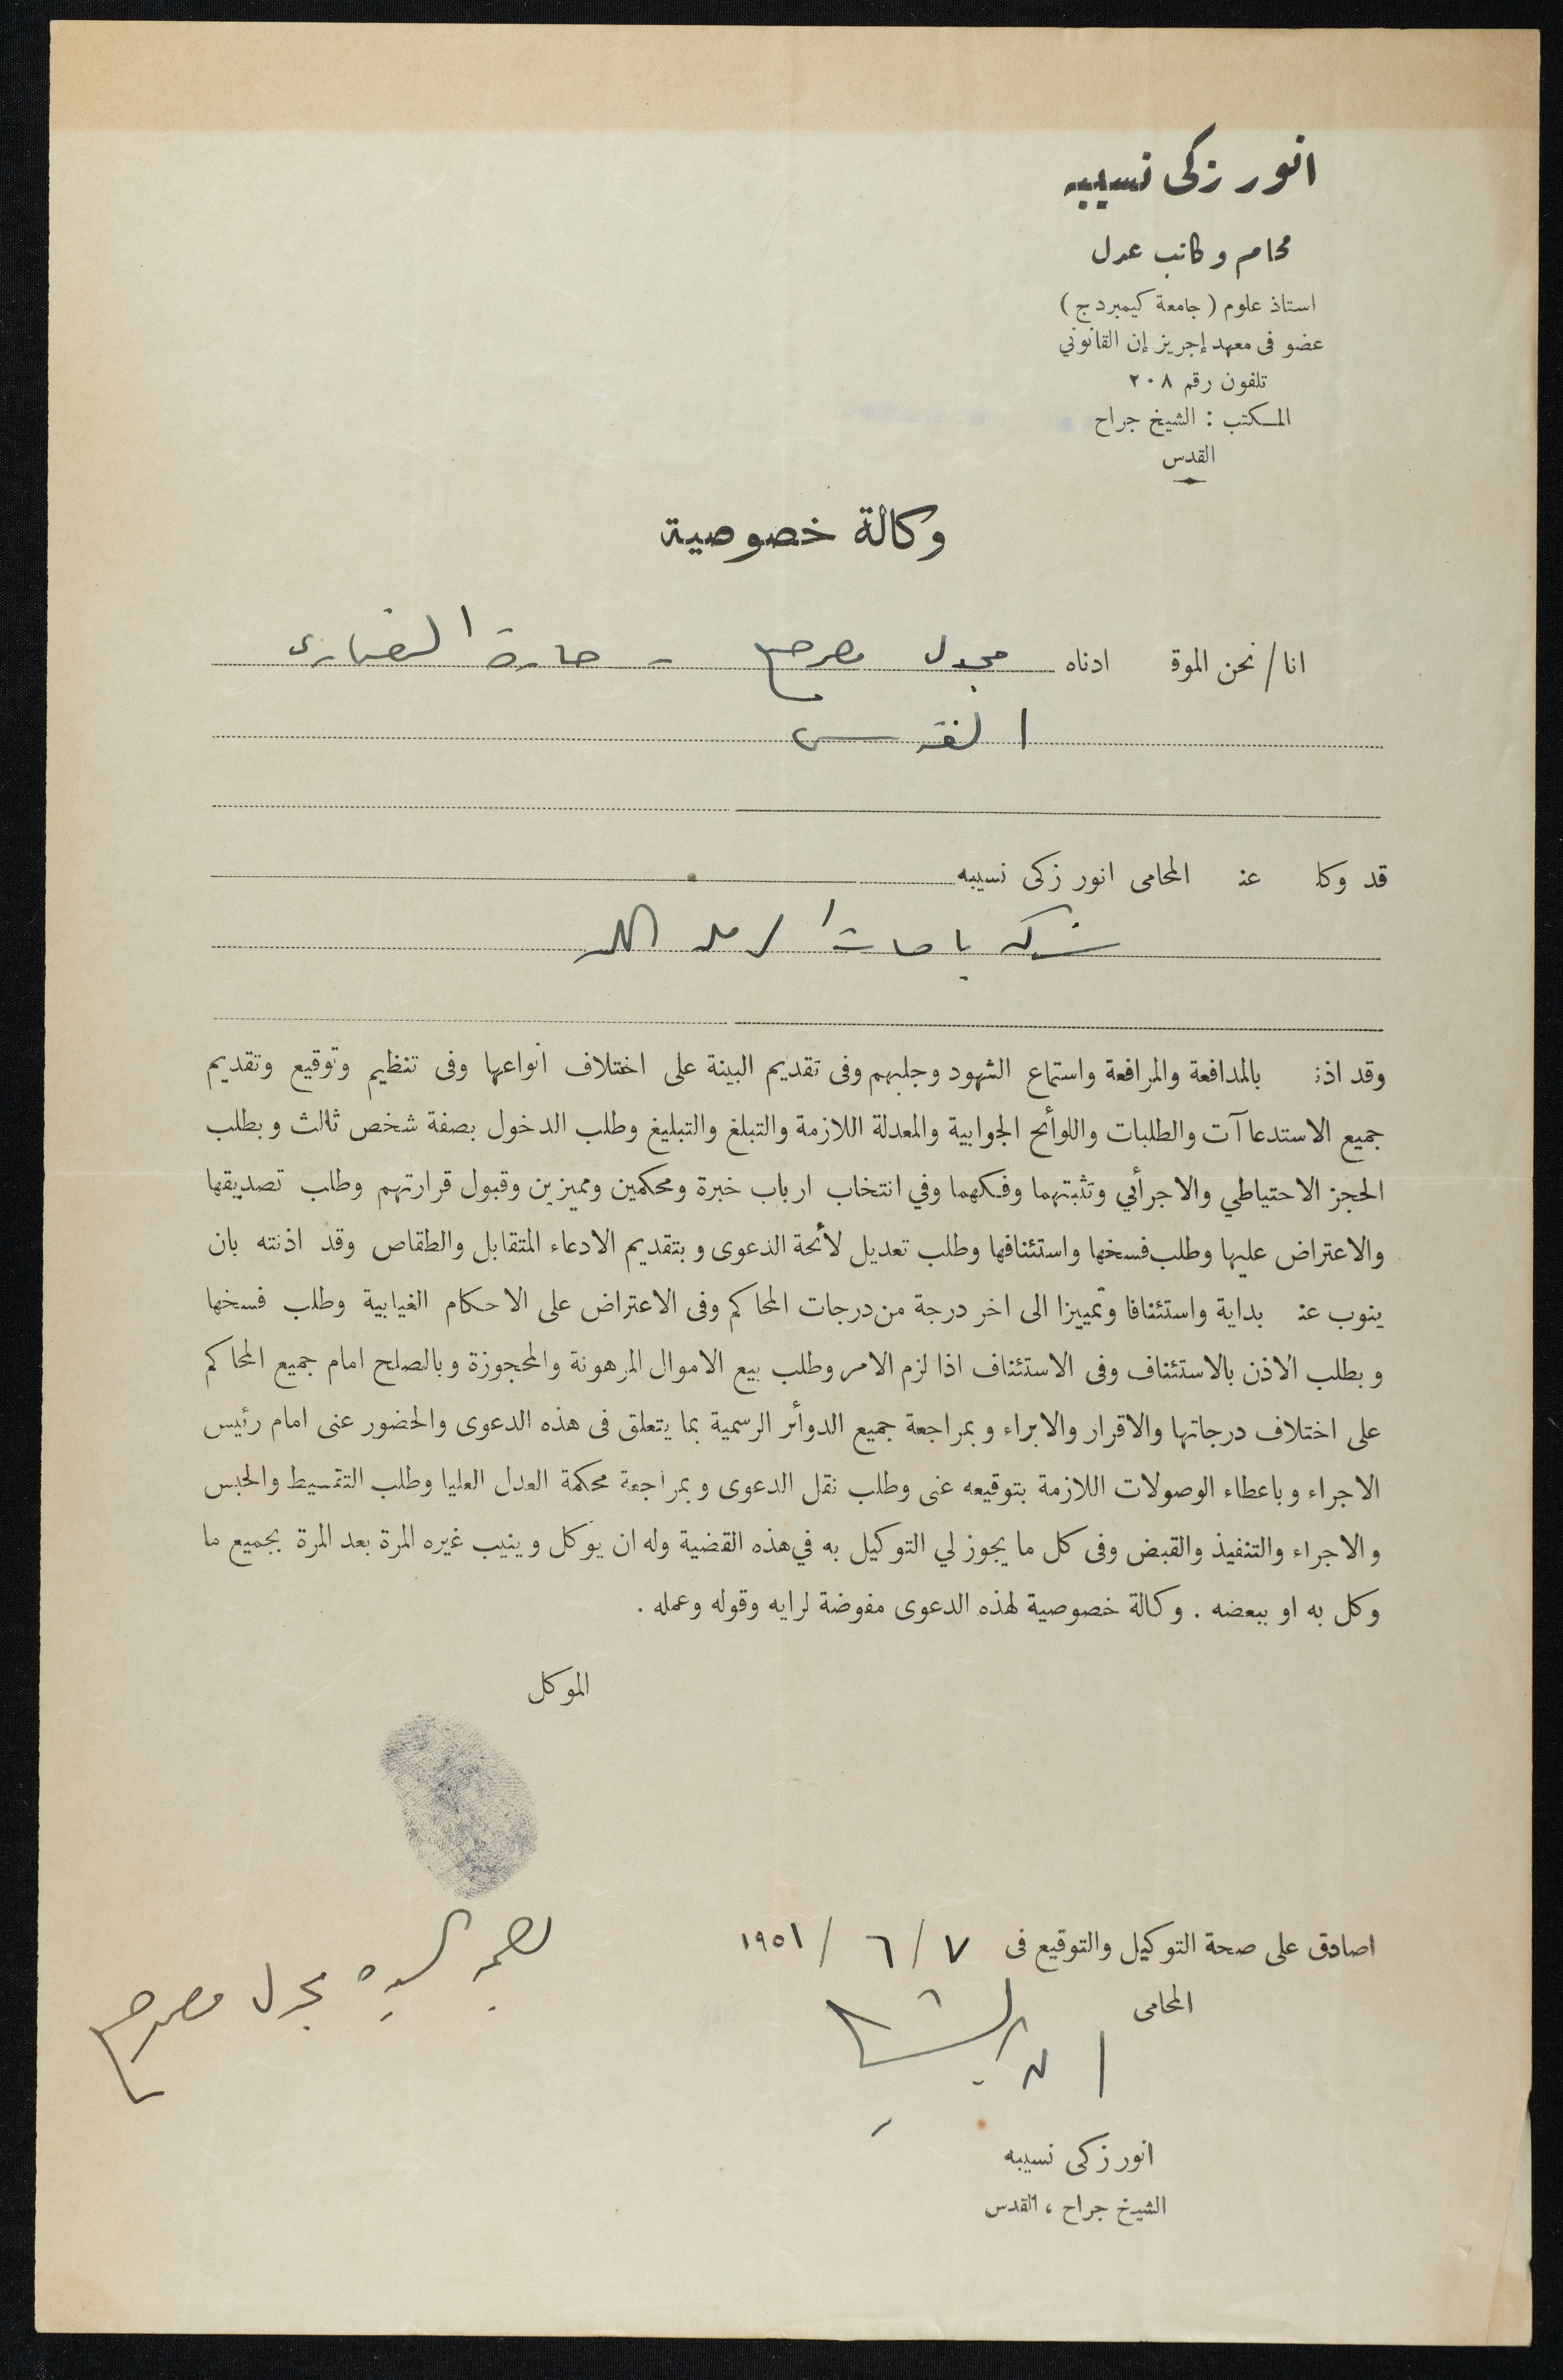 انور زكى نسيبه
محام وكاتب عدل
استاذ علوم ( جامعة كيمبردج )
عضو فى معهد إجريز إن القانوني
تلفون رقم ٢٠٨
المكتب : الشيخ جراح
القدس
وكالة خصوصية
انا / نحن الموقـ ادناه مجدل مصرصع - حارة النصارى
القدس
قد وكلـ عنـ المحامى انور زكى نسيبه
شركة باصات رام الله
وقد اذنـ بالمدافعة والمرافعة واستماع الشهود وجلبهم وفى تقديم البينة على اختلاف انواعها وفى تنظيم وتوقيع وتقديم
جميع الاستدعاآت والطلبات واللوائح الجوابية والمعدلة اللازمة والتبلغ والتبليغ وطلب الدخول بصفة شخص ثالث وبطلب
الحجز الاحتياطي والاجرائي وتثبتهما وفكهما وفي انتخاب ارباب خبرة ومحكمين ومميزين وقبول قرارتهم وطلب تصديقها
والاعتراض عليها وطلب فسخها واستئنافها وطلب تعديل لائحة الدعوى وبتقديم الادعاء المتقابل والطقاص وقد اذنته بان
ينوب عنـ بداية واستئنافا وتمييزا الى اخر درجة من درجات المحاكم وفى الاعتراض على الاحكام الغيابية وطلب فسخها
وبطلب الاذن بالاستئناف وفى الاستئناف اذا لزم الامر وطلب بيع الاموال المرهونة والمحجوزة وبالصلح امام جميع المحاكم
على اختلاف درجاتها والاقرار والابراء وبمراجعة جميع الدوائر الرسمية بما يتعلق فى هذه الدعوى والحضور عنى امام رئيس
الاجراء وباعطاء الوصولات اللازمة بتوقيعه عنى وطلب نقل الدعوى وبمراجعة محكمة العدل العليا وطلب التقسيط والحبس
والاجراء والتنفيذ والقبض وفى كل ما يجوز لي التوكيل به في هذه القضية وله ان يوكل وينيب غيره المرة بعد المرة بجميع ما
وكل به او ببعضه . وكالة خصوصية لهذه الدعوى مفوضة لرايه وقوله وعمله .
الموكل
بصمة السيدة مجدل مصرصع
اصادق على صحة التوكيل والتوقيع فى ٧ / ٦ / ١٩٥١
المحامى
انور زكى نسيبه
الشيخ جراح ، القدس